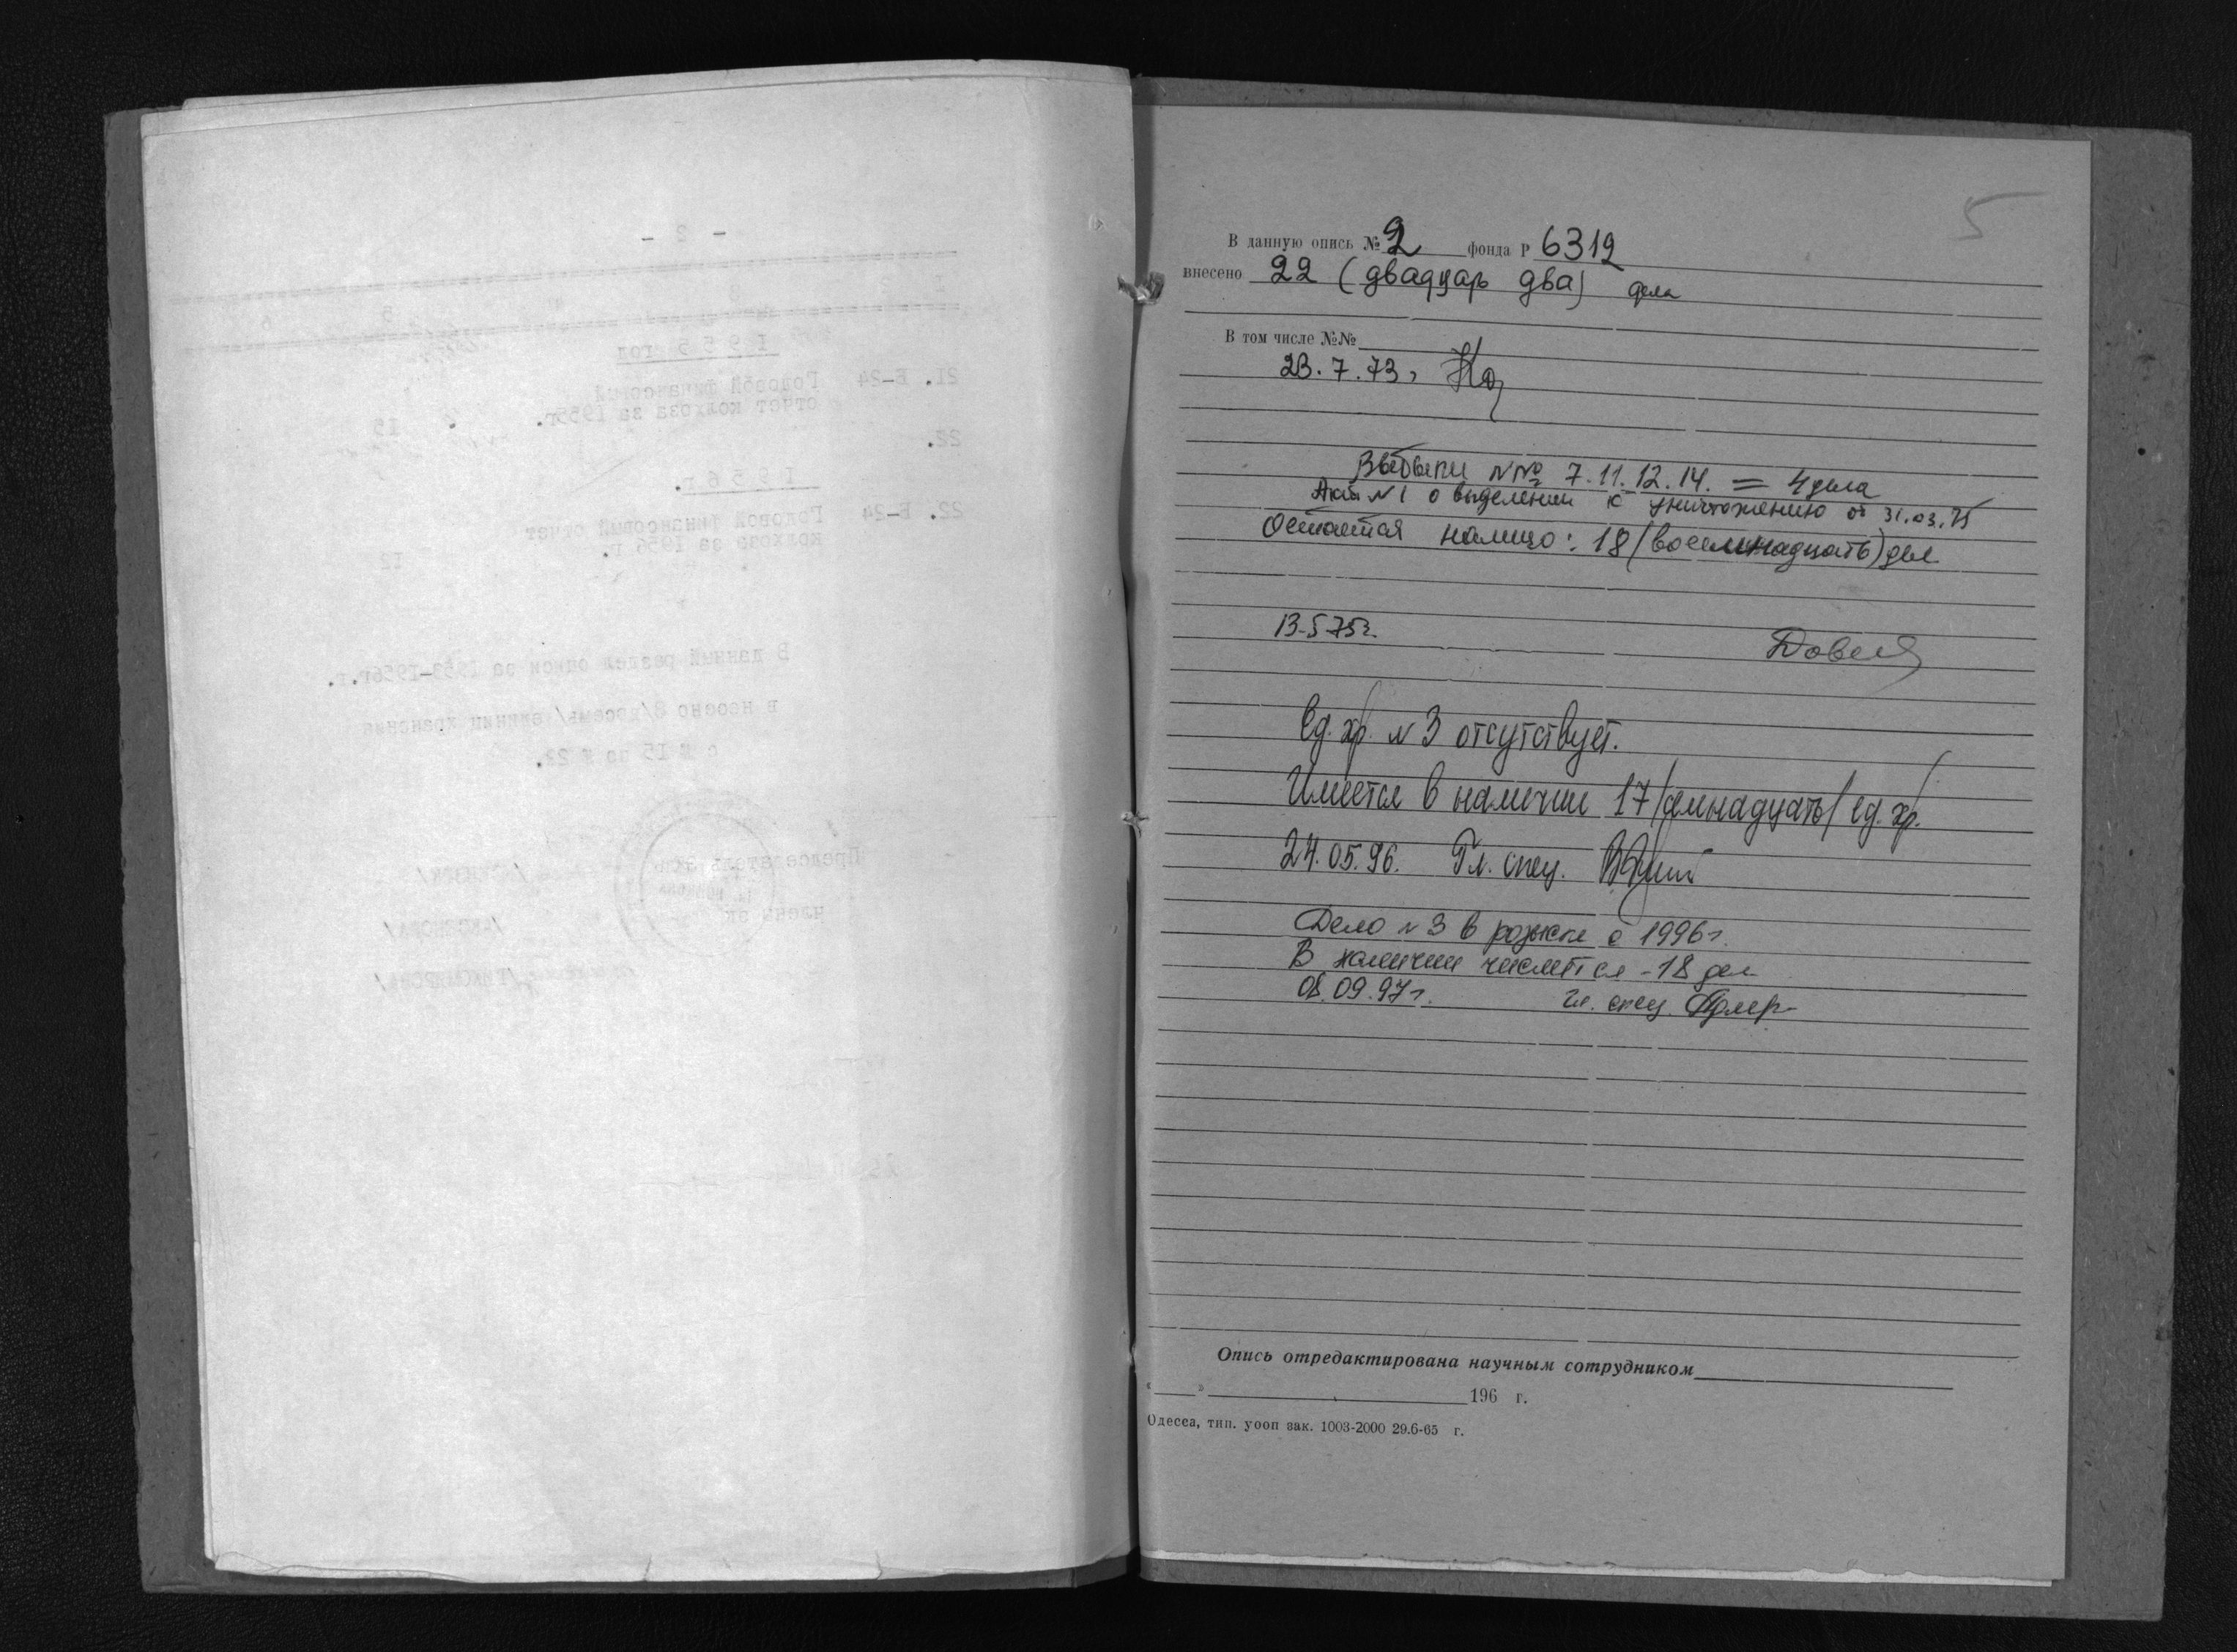 5
В данную опись № 2 фонда Р 6312
внесено 22 (двадцать два) дела
В том числе №№
23.7.73г
Выбыли №№ 7.11.12.14. = 4 дела
Акт №1 о выделении к уничтожению от 31.03.75
Остается налицо: 18 (восемнадцать) дел
13-5 75г.
Ед. хр. № 3 отсутствует.
Имеется в наличии 17 /семнадцать/ ед. хр.
24.05.96. Гл. спец.
Дело № 3 в розыске с 1996г.
В наличии числится - 18 дел
08.09.97г. Гл. спец.
Опись отредактирована научным сотрудником
« » 196 г.
Одесса, тип. уооп зак. 1003-2000 29.6-65 г.
- 2 -
1955 год
21. Е-24 Годовой финансовый
отчет колхоза за 1955г. 15
22.
1956 г.
22. Е-24 Годовой финансовый отчет
колхоза за 1956 г. 12
В данный раздел описи за 1953-1956г.г.
в несено 8/восемь/ единиц хранения
с № 15 по № 22.
Председатель